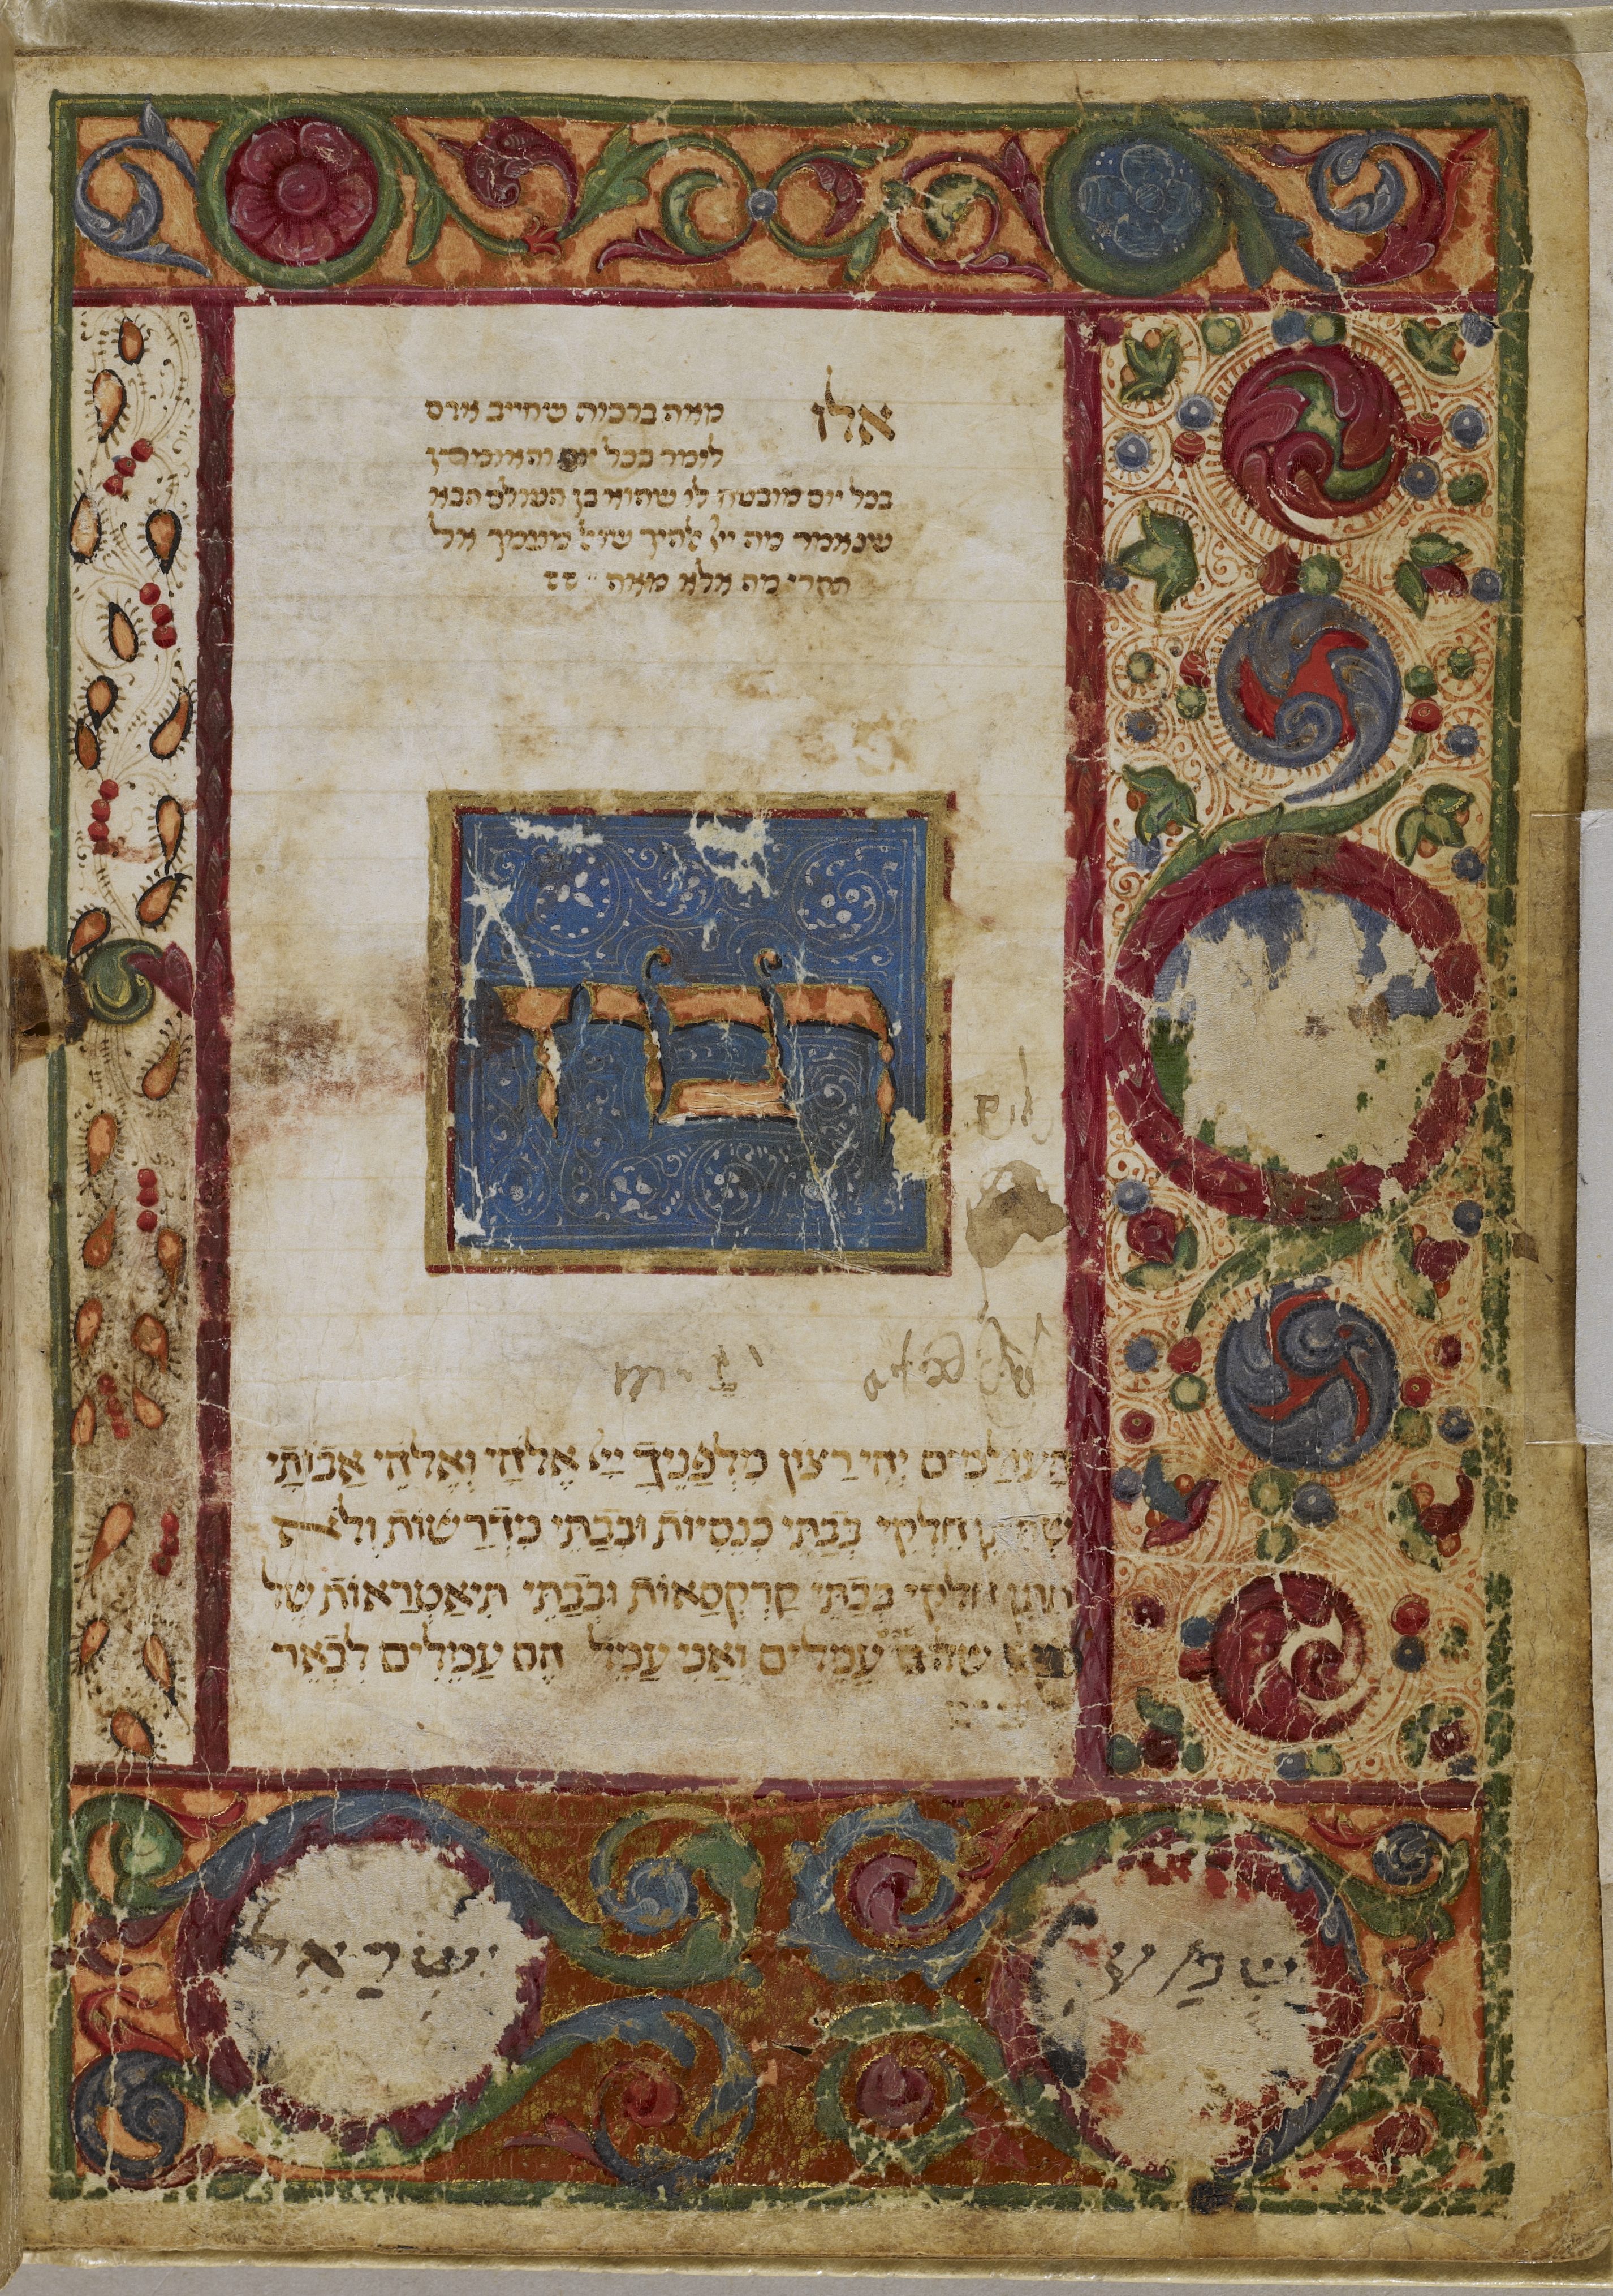 אלו מאה ברכות שחייב אדם
לומר בכל יום והאומרן
בכל יום מובטח לו שהוא בן העולם הבא
שנאמר מה ייי אלהיך שואל מעמך אל
תקרי מה אלא מאה
רבון
הָעוֹלָמִים יְהִי רָצוֹן מִלְּפָנֶיךָ יְיָ אֱלֹהַי וֵאלֹהֵי אֲבוֹתַי
חֶלְקִי בְּבָתֵּי כְנֵסִיּוֹת וּבְבָתֵּי מִדְרָשׁוֹת וְלֹא
תתן חלקי בְּבָתֵּי קִרְקְסָאוֹת וּבְבָתֵּי תֵיאַטְרָאוֹת שֶׁל
שהם עֲמֵלִים וַאֲנִי עָמֵל הֵם עֲמֵלִים לִבְאֵר
שְׁמַע יִשְׂרָאֵל